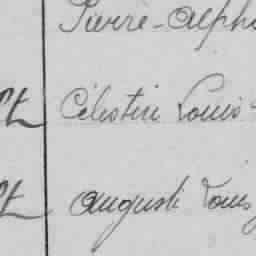 Pierre-Alpho
Célestin Louis
Auguste Louis